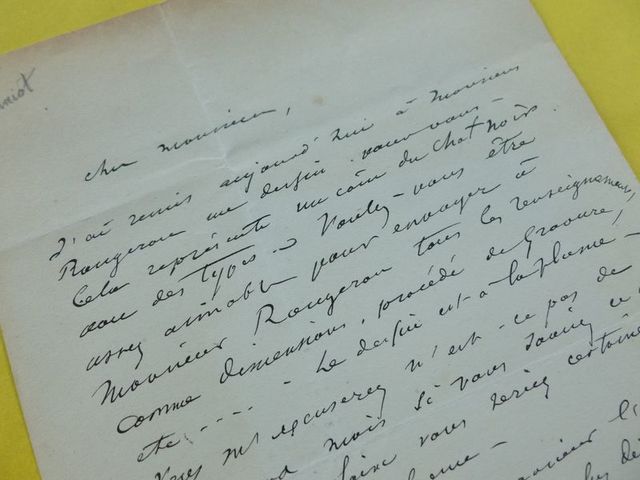 cher monsieur,
J'ai remis aujourd'hui à Monsieur
Rougeron un dessin pour vous -
Cela représente un coin du Chat Noir
avec des types - Voulez-vous être
assez aimable pour envoyer à
Monsieur Rougeron tous les renseignements,
comme dimensions, procédé de gravure,
etc. . . . . - Le dessin est à la plume -
Vous m'excuserez n'est-ce pas de
mais si vous saviez
vous seriez certaine